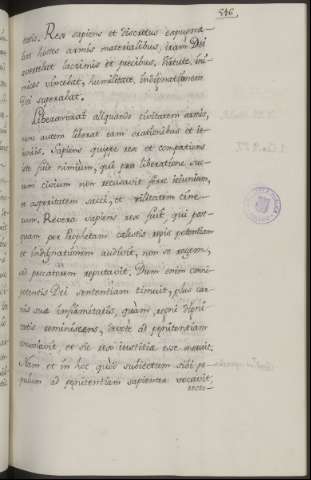 546.
tatis. Rex sapiens et discretus expugna-
bat hostes armis materialibus, iram Dei
avertebat lacrimis et precibus, virtute, ini-
micos vincebat, humilitate, indignationem
Dei superabat.
Liberaverat aliquando civitatem armis,
nunc autem liberat eam orationibus et ie-
iuniis. Sapiens quippe rex et compatiens
iste fuit nimium, qui pro liberatione suo-
rum civium non recusavit ferre ieiunium,
et asperitatem sacci, et vilitatem cine-
rum. Revera sapiens rex fuit, qui post-
quam per Prophetam cælestis regis potentiam
et indignationem audivit, non se regem,
sed peccatorem reputavit. Dum enim omni-
potentis Dei sententiam timuit, plus car-
nis suæ infirmitatis, quam regni digni-
tatis reminiscens, cunctos ad penitentiam
vocavit, et sic rex iustitiæ esse meruit.
Nam et in hoc quod subiectum sibi po-
pulum ad penitentiam sapienter vocavit,